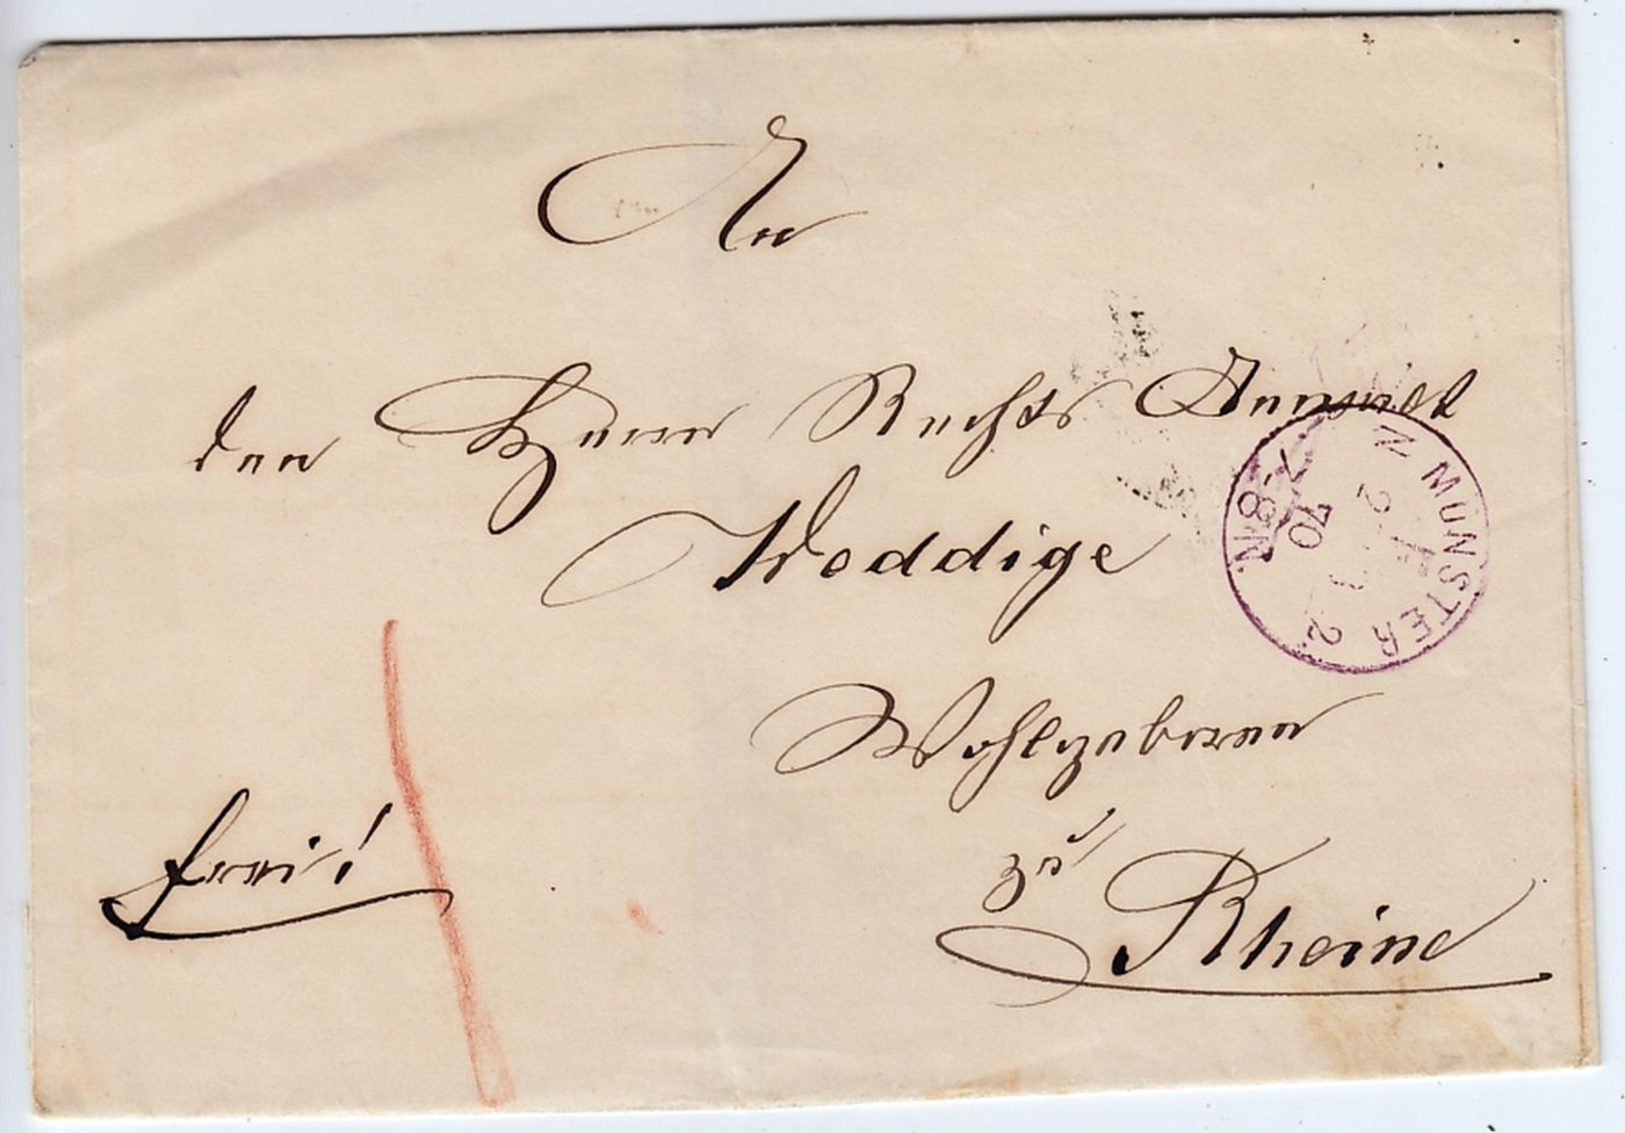 An
den Herrn Rechts Anwalt
Weddige
Wohlgeboren
zu
Rheine
frei!
MÜNSTER 2
70
7-8 N